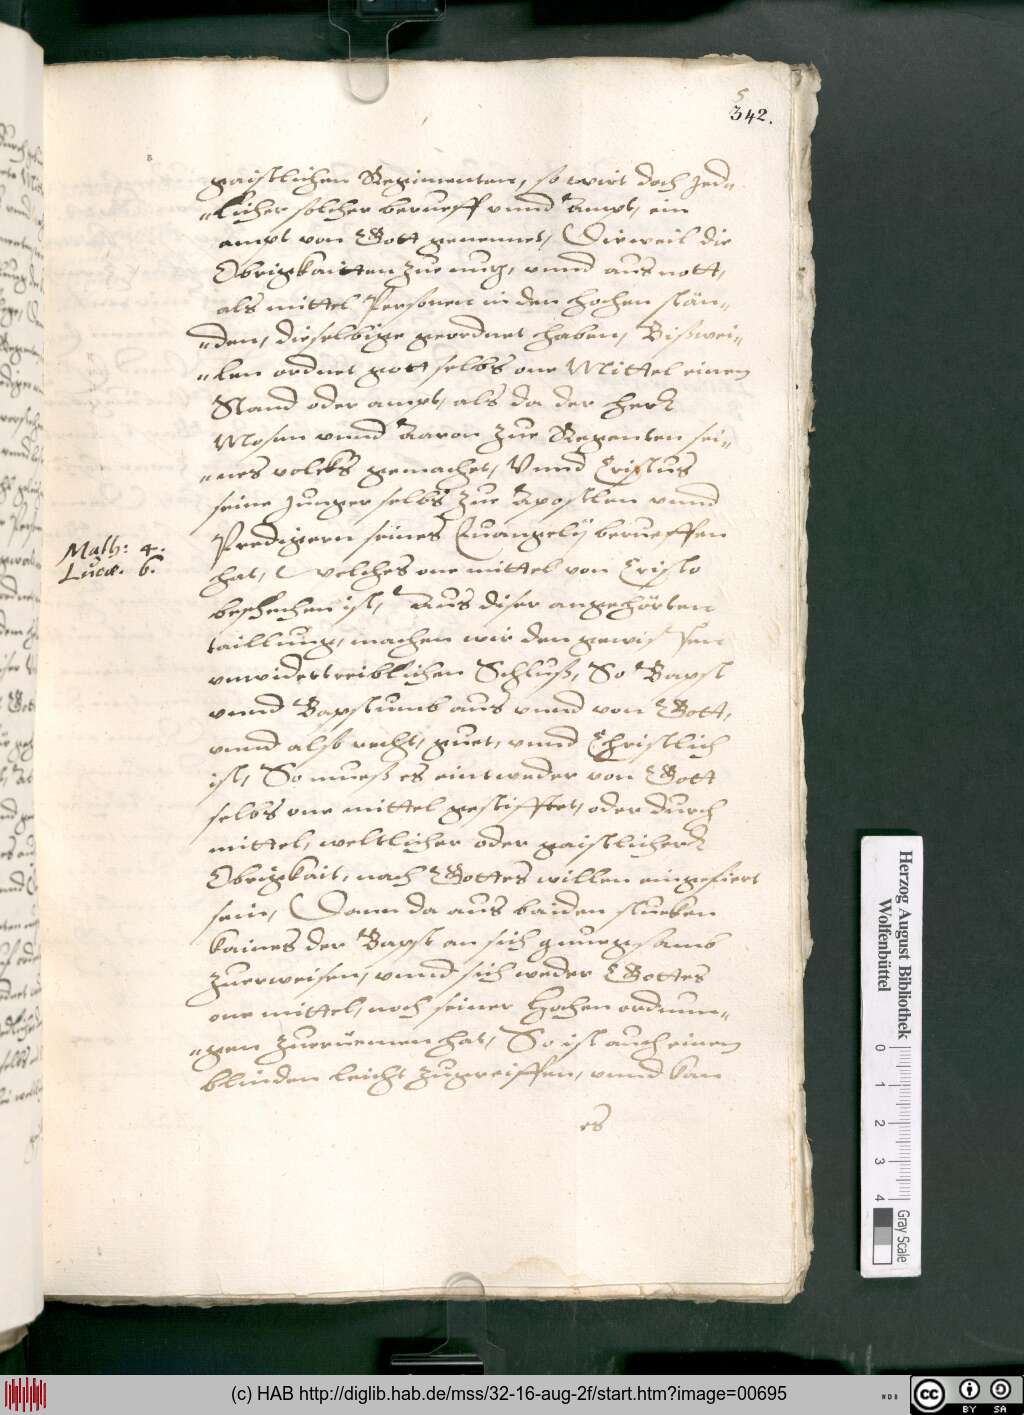 5
342.
gaistlichen Regimenten, so wirt doch jed„
„licher solcher berueff vnnd Ampt, ein
ampt von Gott genennet, Dieweil die
Obrigkaitten zue nutz, vnnd aus nott,
als mittel Personen in den hochen stän„
„den, dieselbige geordnet haben, Bißwei„
„len ordnet gott selbs one Mittel einem
Stand oder ampt, als da der Herr
Mosen vnnd Aaron zue Regenten sei„
„nes volcks gemachet, Vnnd Cristus
seine Junger selbs zue Apostlen vnnd
Predigern seines Euangelij berueffen
Math: 4.
Lucæ. 6.
hat, Welches one mittel von Cristo
beschechen ist, Aus diser angehörten
taillung, machen wir den gewissen
vnwidertreiblichen Schluß, So Bapst
vnnd Bapstumb aus vnnd von Gott,
vnnd also recht, guet, vnnd Christlich
ist, So mueß es eintweder von Gott
selbs one mittel gestifftet, oder durch
mittel, weltlicher oder gaistlicher
Obrigkait, nach Gottes willen eingefiert
sein, Dann da aus baiden stucken
kaines der Bapst an sich gnuegsamb
zuerweisen, vnnd sich weder Gottes
one mittel, noch seiner hochen ordnun„
„gen zuerüemen hat, So ist auch einem
blinden leicht zugreiffen, vnnd kan
es
Herzog August Bibliothek
Wolfenbüttel
0 1 2 3 4
Gray Scale
(c) HAB http://diglib.hab.de/mss/32-16-aug-2f/start.htm?image=00695
cc BY SA